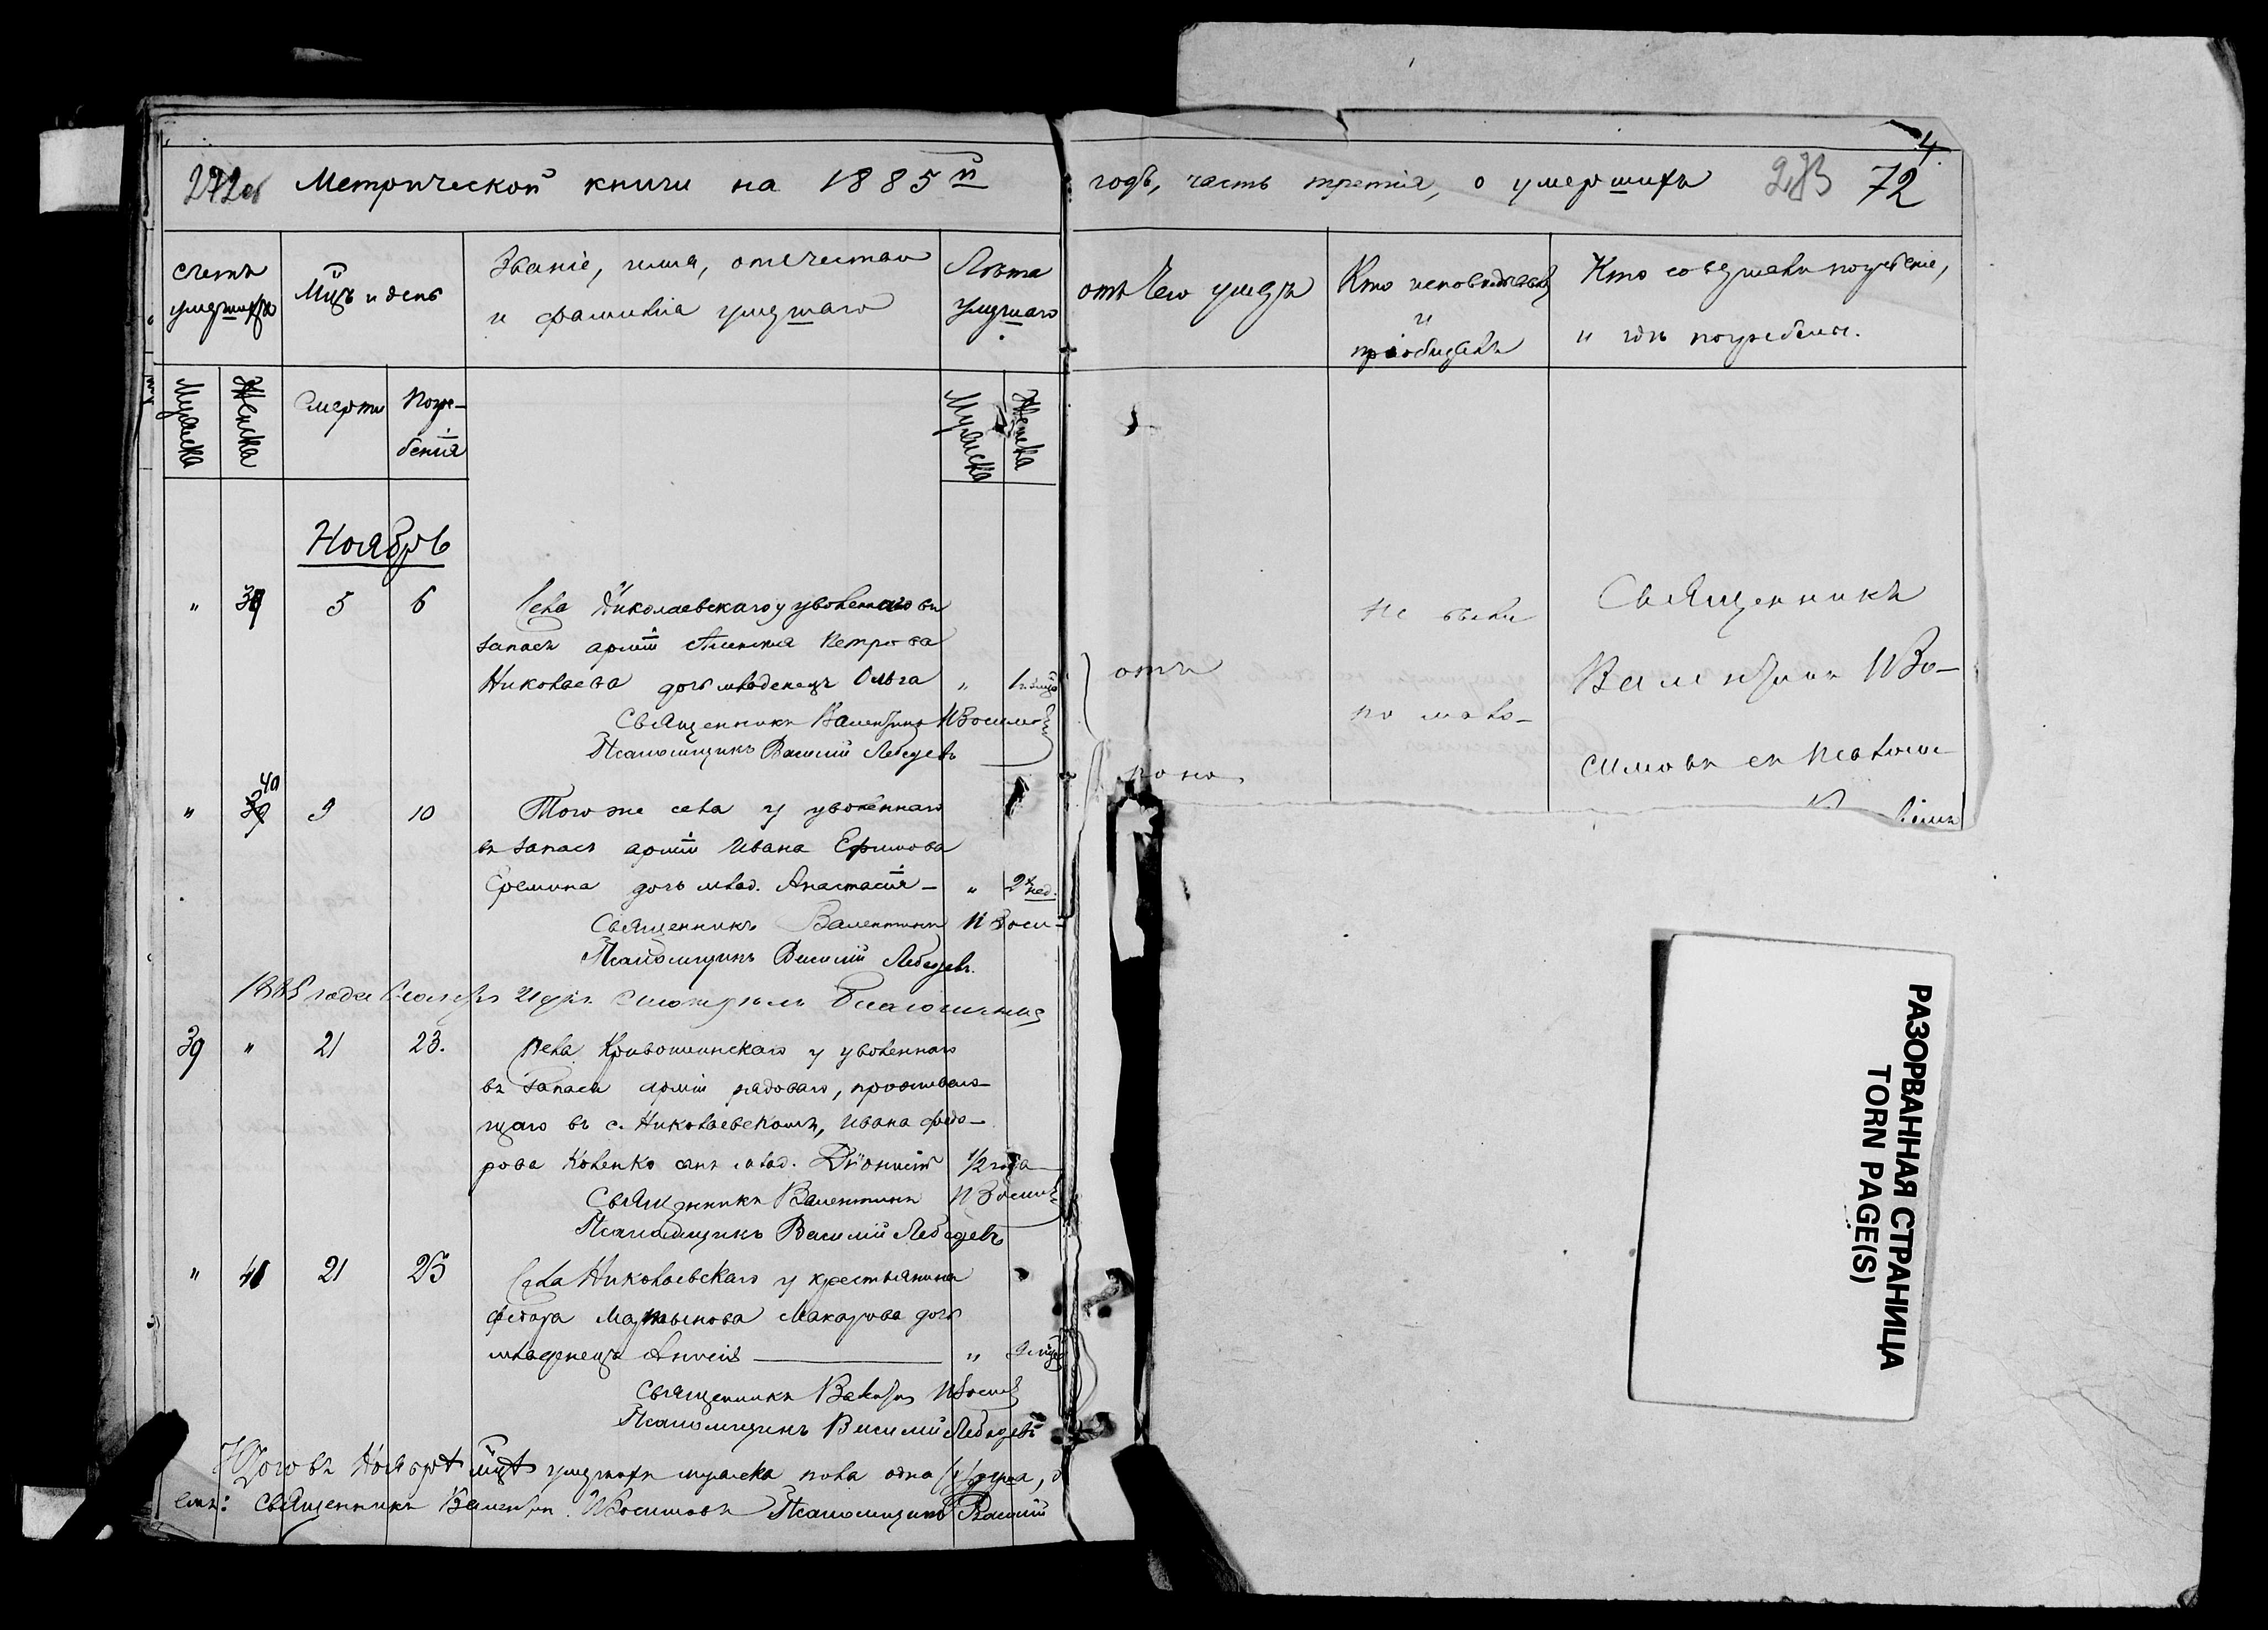 272об Метрической книги на 1885й
годъ, часть третія, о умершихъ 273 72
4
Счетъ умершихъ
Мцъ и день
Званіе, имя, отечество
и фамилія умершаго
Лѣта умершаго
отъ чего умеръ
Кто исповѣдывалъ
и
пріобщалъ
Кто совершалъ погребеніе,
и гдѣ погребены.
Мужска
Женска
Смерти
Погре-
бенія
Мужска
Женска
Ноябрь
" 5 6 Села Николаевскаго у уволеннаго въ
запасъ арміи Петрова
Николаева дочь младенецъ Ольга "
Священникъ Валентинъ Изосимов
Псаломщикъ Василій Лебедевъ
отъ
поно
Не были
по мало-
Священникъ
Валентинъ Изо-
симовъ съ псалом
" 40 9 10 Того же села у уволеннаго
въ запасъ арміи Ивана Ефимова
Еремина дочь млад. Анастасія - " 2 нед.
Священникъ Валентинъ Изоси-
Псаломщикъ Василій Лебедевъ.
1885 года Ноября 21 дня смотрѣлъ Благочинный
39 " 21 23. Села Кривошинскаго у уволеннаго
въ запасъ арміи рядоваго, проживаю-
щаго въ с. Николаевскомъ, Ивана Федо-
рова Коленко сынъ млад. Діонисій 1/2 года
Священникъ Валентинъ Изосим
Псаломщикъ Василій Лебедевъ
" 41 21 23 Села Николаевскаго у крестьянина
Федора Мартынова Макарова дочь
младенецъ Анисія "
Священникъ Валентинъ Изосим
Псаломщикъ Василій Лебедевъ
Итого въ Ноябрѣ мцѣ умершихъ мужска пола одна (1) душа,
Священникъ Валентинъ Изосимовъ Псаломщикъ Василій
РАЗОРВАННАЯ СТРАНИЦА
TORN PAGE(S)